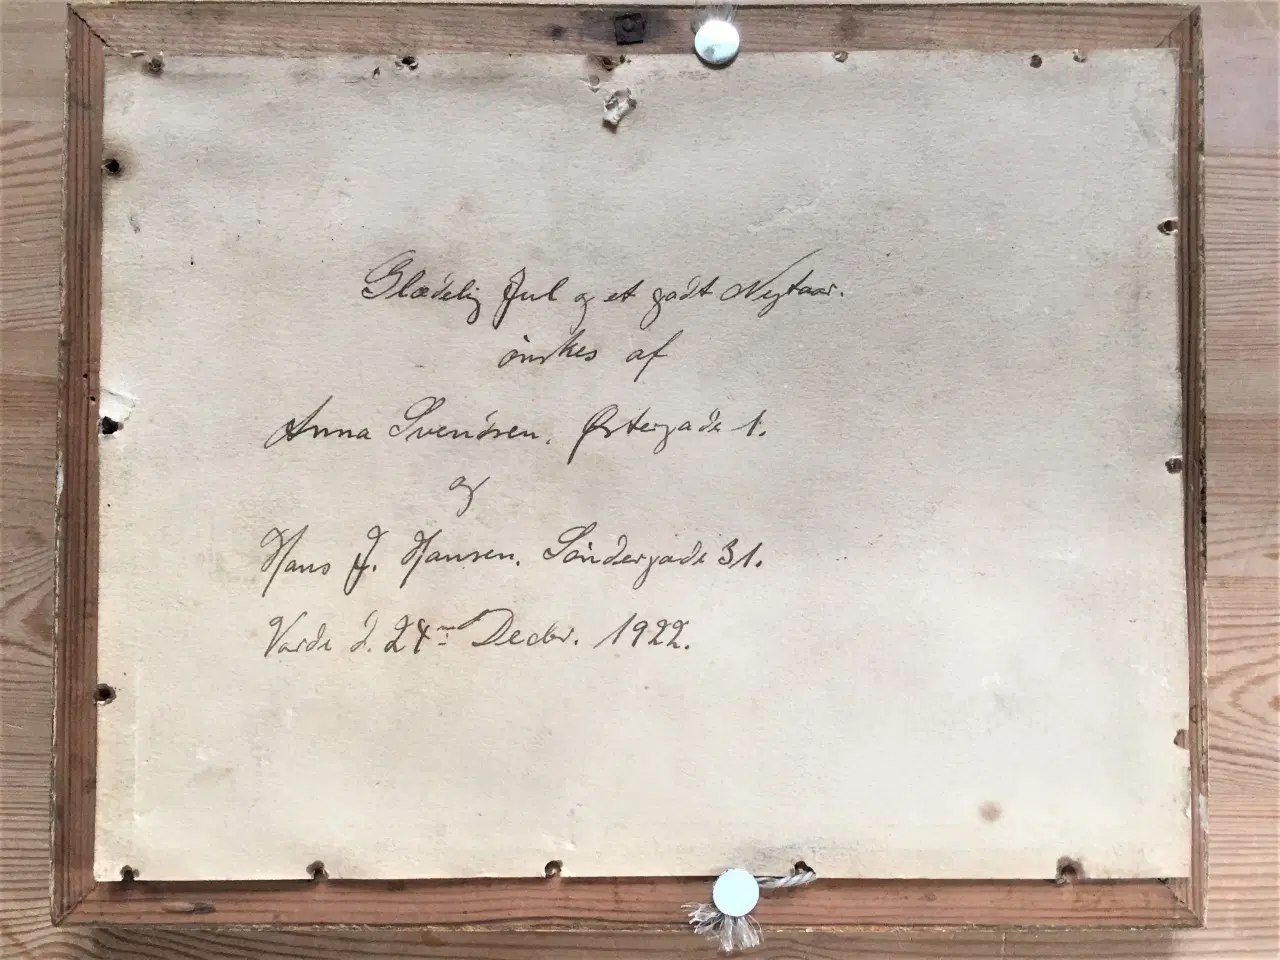 Glædelig Jul og et godt Nytaar.
ønskes af
Anna Svendsen. Østergade 1.
og
Hans J. Hansen. Söndergade 31.
Varde d. 24de Decbr. 1922.